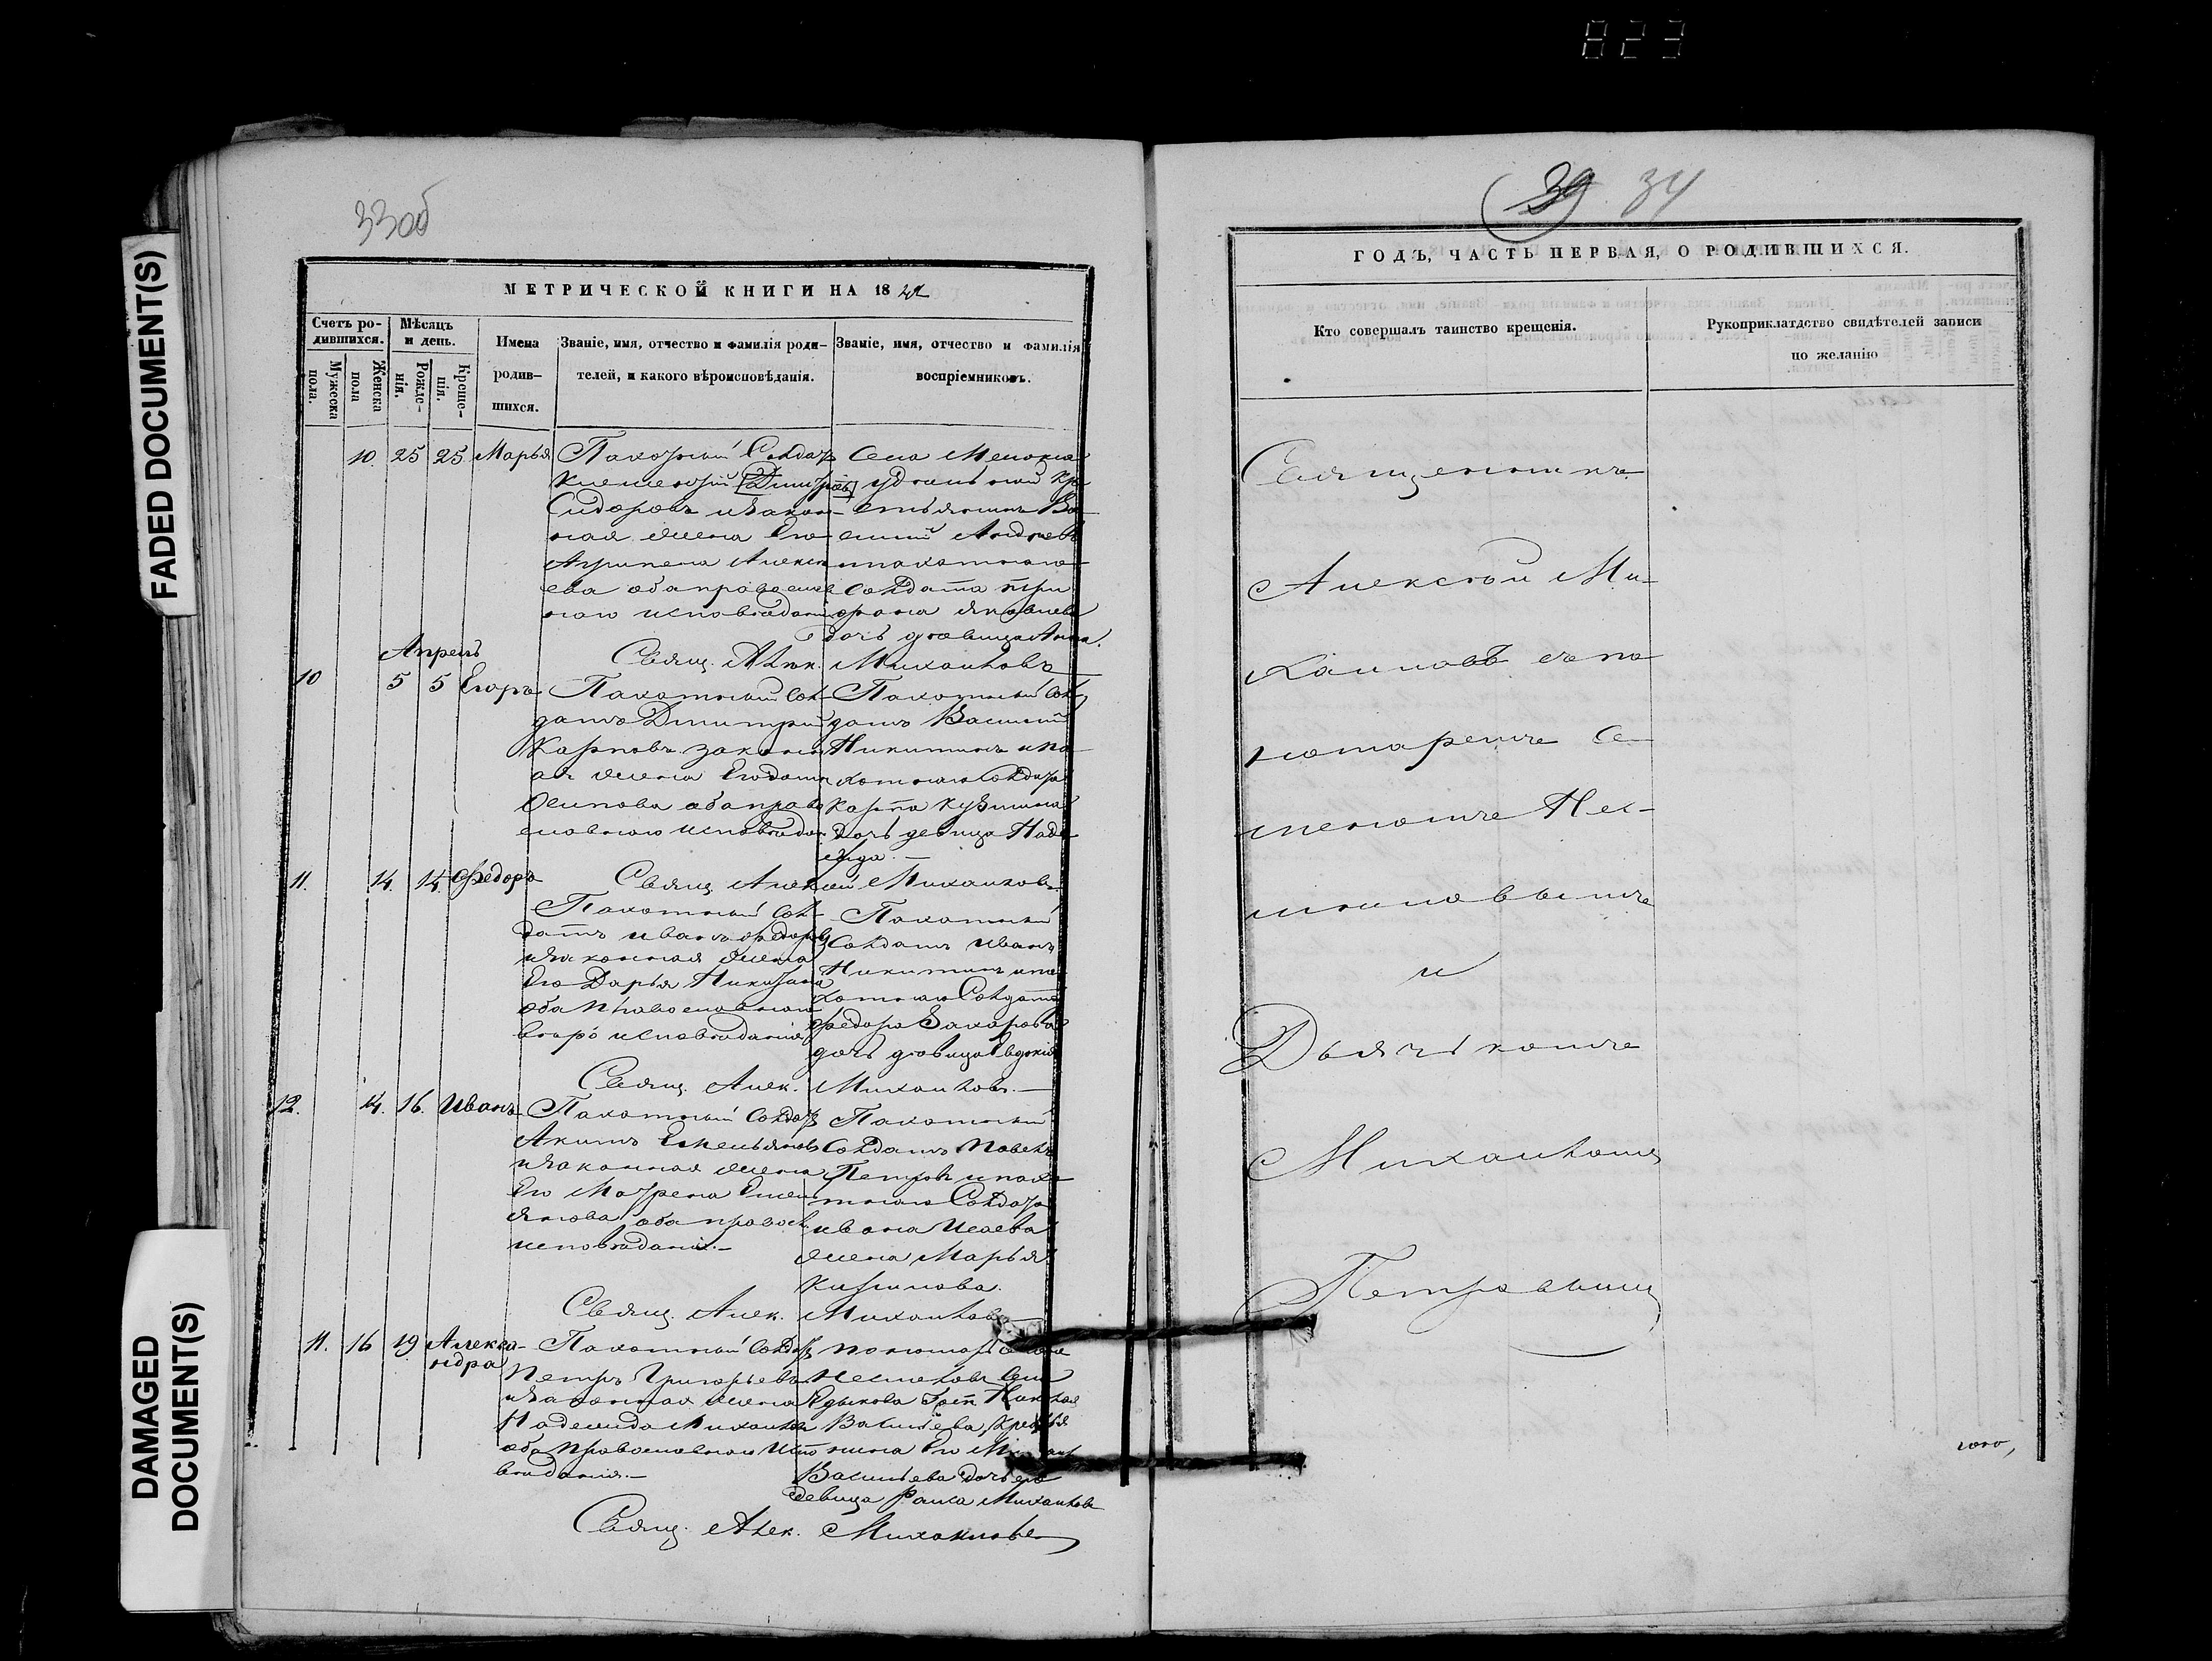 823
FADED DOCUMENT(S)
DAMAGED
DOCUMENT(S)
33об
МЕТРИЧЕСКОЙ КНИГИ НА 18
Счетъ ро-
дившихся.
Мужеска
пола.
Женска
пола
Мѣсяцъ
и день.
Рожде-
нія.
Креще-
нія.
Имена
родив-
шихся.
Званіе, имя, отчество и фамилія роди-
телей, и какого вѣроисповѣданія.
Званіе, имя, отчество и фамилія
воспріемниковъ.
10. 25 25 Марья
Пахотный Солдатъ
Климентій
Сидоровъ и закон-
ная жена Его
Агрипена Алексѣ
ева оба православ
наго исповѣдані
Села
удѣльной кр
естьянинъ Ва
силий Андреевъ
и пахотнаго
солдата
Яковлева
дочь девица Анна.
Свящ. Алек. Михаиловъ
Апрель
10 5 5 Егоръ
Пахотный Сол
датъ Дмитрий
Карповъ законн
ая жена Его
Осипова оба право
славнаго исповедан.
Пахотный Сол
датъ Василий
Никитинъ и па
хотнаго Солдата
Карпа Кузмина
дочь девица Наде
жда.
Свящ. Алексей Михаиловъ
11. 14. 14. Федоръ
Пахотный Сол
датъ Иванъ Федоровъ
и законная жена
Его Дарья Никитина
оба Православнаго
исповѣдания
Пахотный
Солдатъ Иванъ
Никитинъ и па
хотнаго Солдата
Федора Захарова
дочь девица Евдокия
Свящ. Алек. Михаиловъ.
12. 14. 16. Иванъ
Пахотный Солдатъ
Акимъ Емельяновъ
и законная жена
Его Матрена Емел
янова оба правосл
исповѣдания.
Пахотный
Солдатъ Павелъ
Петровъ и пахо
тнаго Солдата
Ивана Исаева
жена Марья
Кирилова.
Свящ. Алек. Михаиловъ
11. 16 19 Алекса-
ндра
Пахотный Солдатъ
Петръ Григорьевъ
и законная жена
Надежда Михаилова
оба Православнаго Испо
вѣдания.
Васильева
Васильева дочь его
девица Михаилова
Свящ. Алек. Михаиловъ
39 34
ГОДЪ, ЧАСТЬ ПЕРВАЯ, О РОДИВШИХСЯ.
Кто совершалъ таинство крещенія.
Рукоприклатдство свидѣтелей записи
по желанію
Священникъ
Алексѣй Ми-
хаиловъ съ по
номаремъ Се-
меномъ Нес-
меловымъ
и
Дьячькомъ
Михаиломъ
Петровымъ